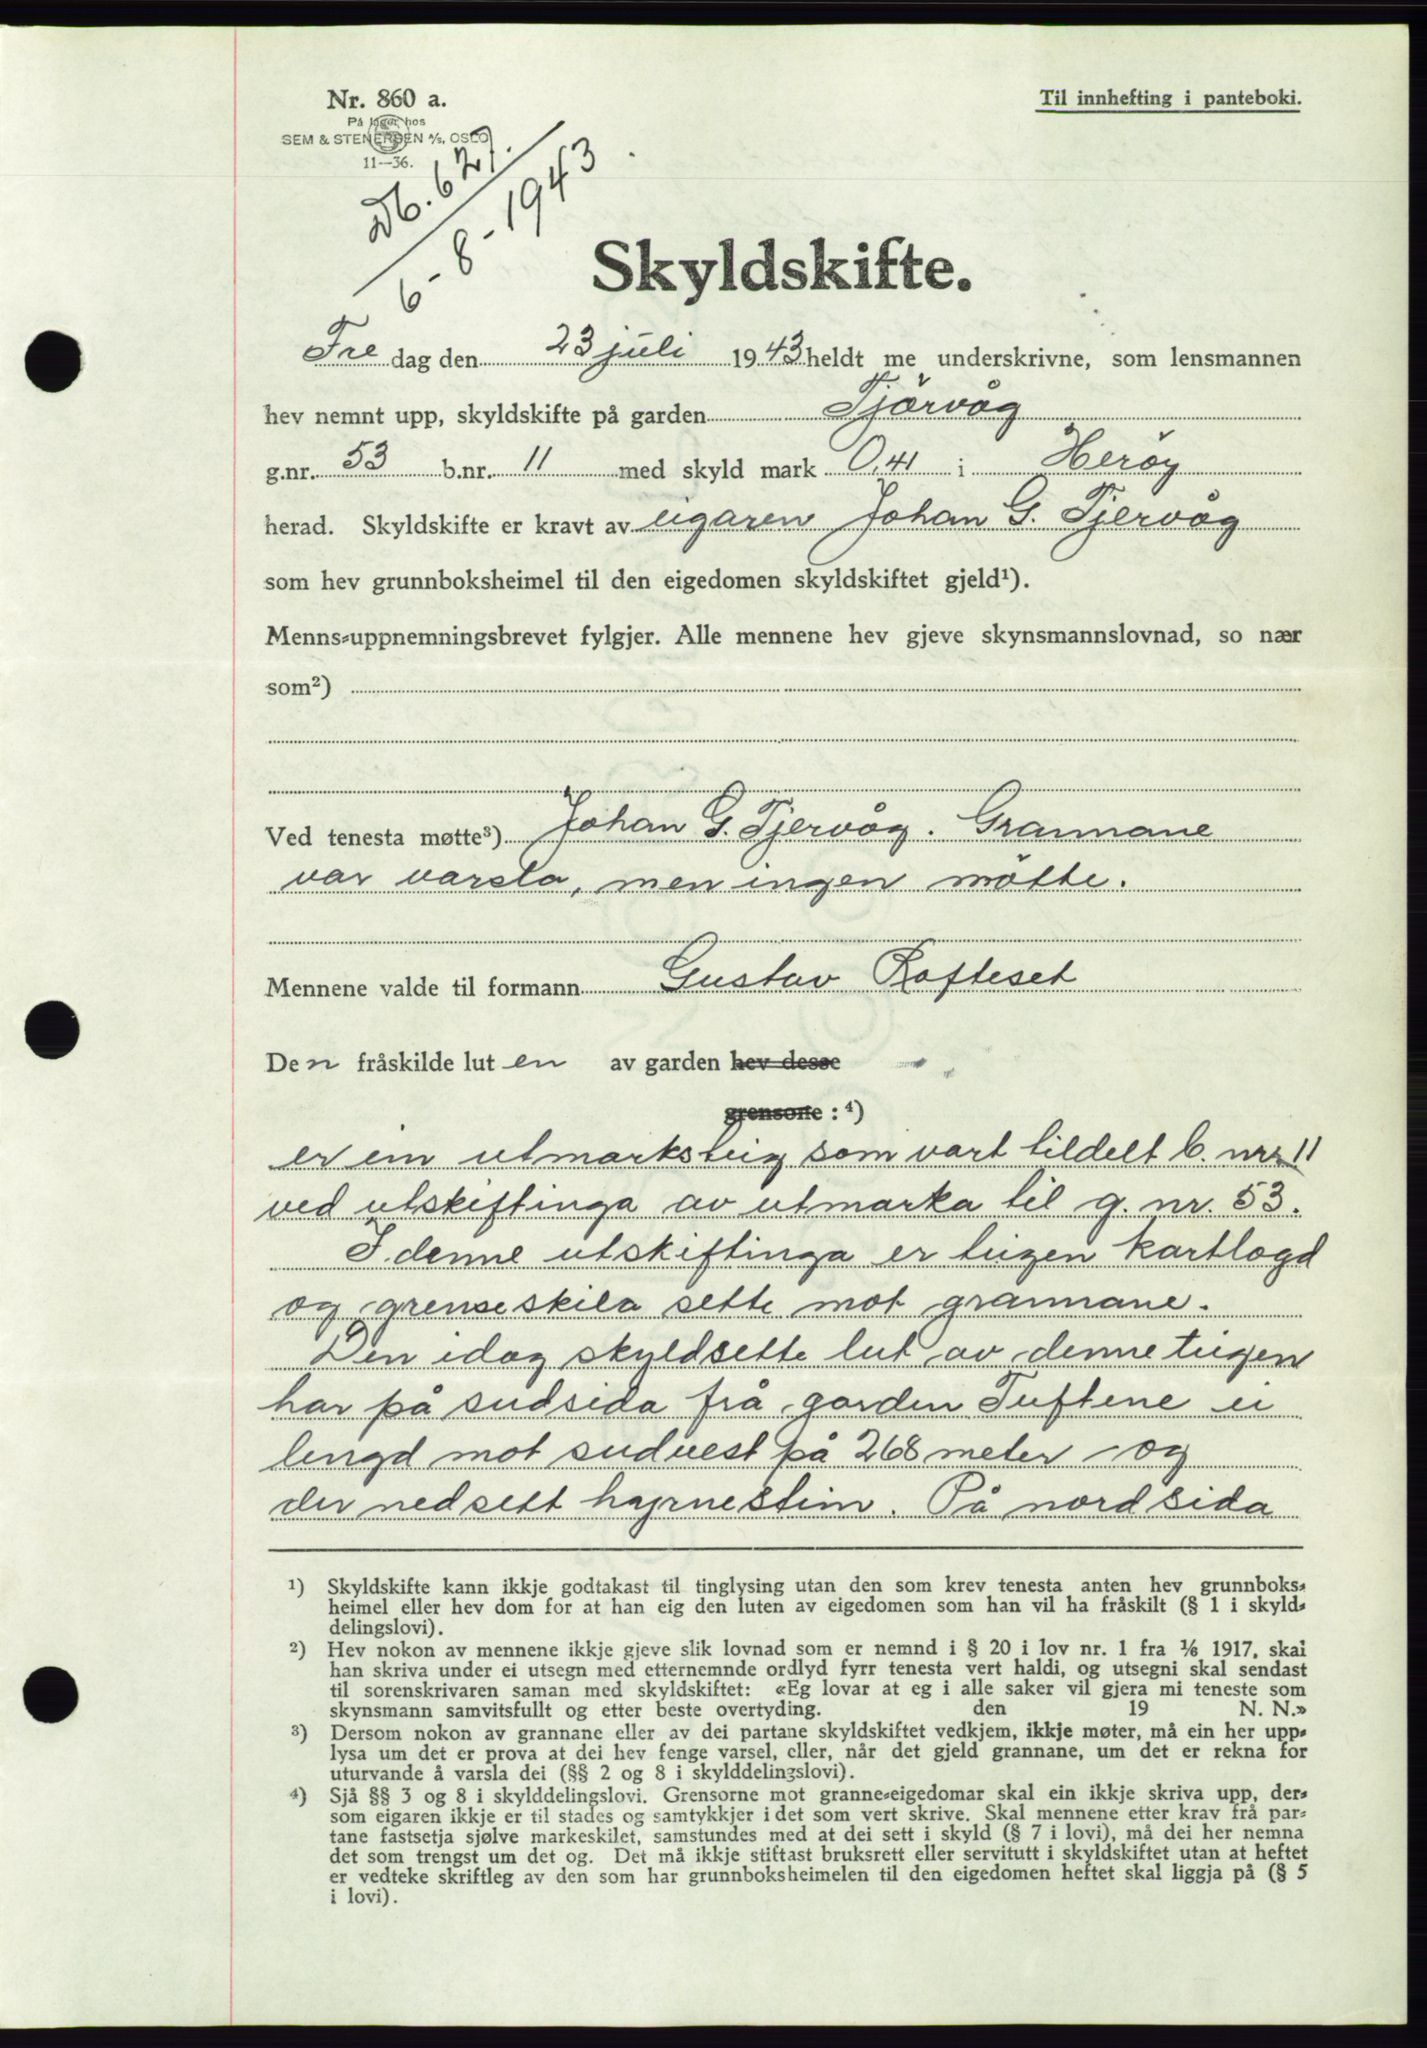 Nr. 860 a.
På lager hos
SEM & STENERSEN A/S, OSLO
11—36.
Til innhefting i panteboki.
Db. 627.
6-8-1943.
Skyldskifte.
Fre dag den 23 juli 1943 heldt me underskrivne, som lensmannen
hev nemnt upp, skyldskifte på garden Tjörvåg
g.nr. 53 b.nr. 11 med skyld mark 0,41 i Heröy
herad. Skyldskifte er kravt av eigaren Johan G. Tjervåg
som hev grunnboksheimel til den eigedomen skyldskiftet gjeld¹).
Menns-uppnemningsbrevet fylgjer. Alle mennene hev gjeve skynsmannslovnad, so nær
som²)
Ved tenesta møtte³) Johan G. Tjervåg. Grannane
var varsla, men ingen mötte.
Mennene valde til formann Gustav Rafteset
Den fråskilde luten av garden hev desse
grensorne : ⁴)
er ein utmarksteig som vart tildelt b. nr. 11
ved utskiftinga av utmarka til g. nr. 53.
I denne utskiftinga er teigen kartlagd
og grenseskila sette mot grannane.
Den idag skyldsette lut av denne teigen
har på sudsida frå garden Tuftene ei
lengd mot sudvest på 268 meter og
der nedsett hyrnestein. På nordsida
¹) Skyldskifte kann ikkje godtakast til tinglysing utan den som krev tenesta anten hev grunnboks-
heimel eller hev dom for at han eig den luten av eigedomen som han vil ha fråskilt (§ 1 i skyld-
delingslovi).
²) Hev nokon av mennene ikkje gjeve slik lovnad som er nemnd i § 20 i lov nr. 1 fra 1/6 1917, skal
han skriva under ei utsegn med etternemnde ordlyd fyrr tenesta vert haldi, og utsegni skal sendast
til sorenskrivaren saman med skyldskiftet: «Eg lovar at eg i alle saker vil gjera mi teneste som
skynsmann samvitsfullt og etter beste overtyding. den 19 N. N.»
³) Dersom nokon av grannane eller av dei partane skyldskiftet vedkjem, ikkje møter, må ein her upp-
lysa um det er prova at dei hev fenge varsel, eller, når det gjeld grannane, um det er rekna for
uturvande å varsla dei (§§ 2 og 8 i skylddelingslovi).
⁴) Sjå §§ 3 og 8 i skylddelingslovi. Grensorne mot granne-eigedomar skal ein ikkje skriva upp, der-
som eigaren ikkje er til stades og samtykkjer i det som vert skrive. Skal mennene etter krav frå par-
tane fastsetja sjølve markeskilet, samstundes med at dei sett i skyld (§ 7 i lovi), må dei her nemna
det som trengst um det og. Det må ikkje stiftast bruksrett eller servitutt i skyldskiftet utan at heftet
er vedteke skriftleg av den som har grunnboksheimelen til den eigedomen heftet skal liggja på (§ 5
i lovi).